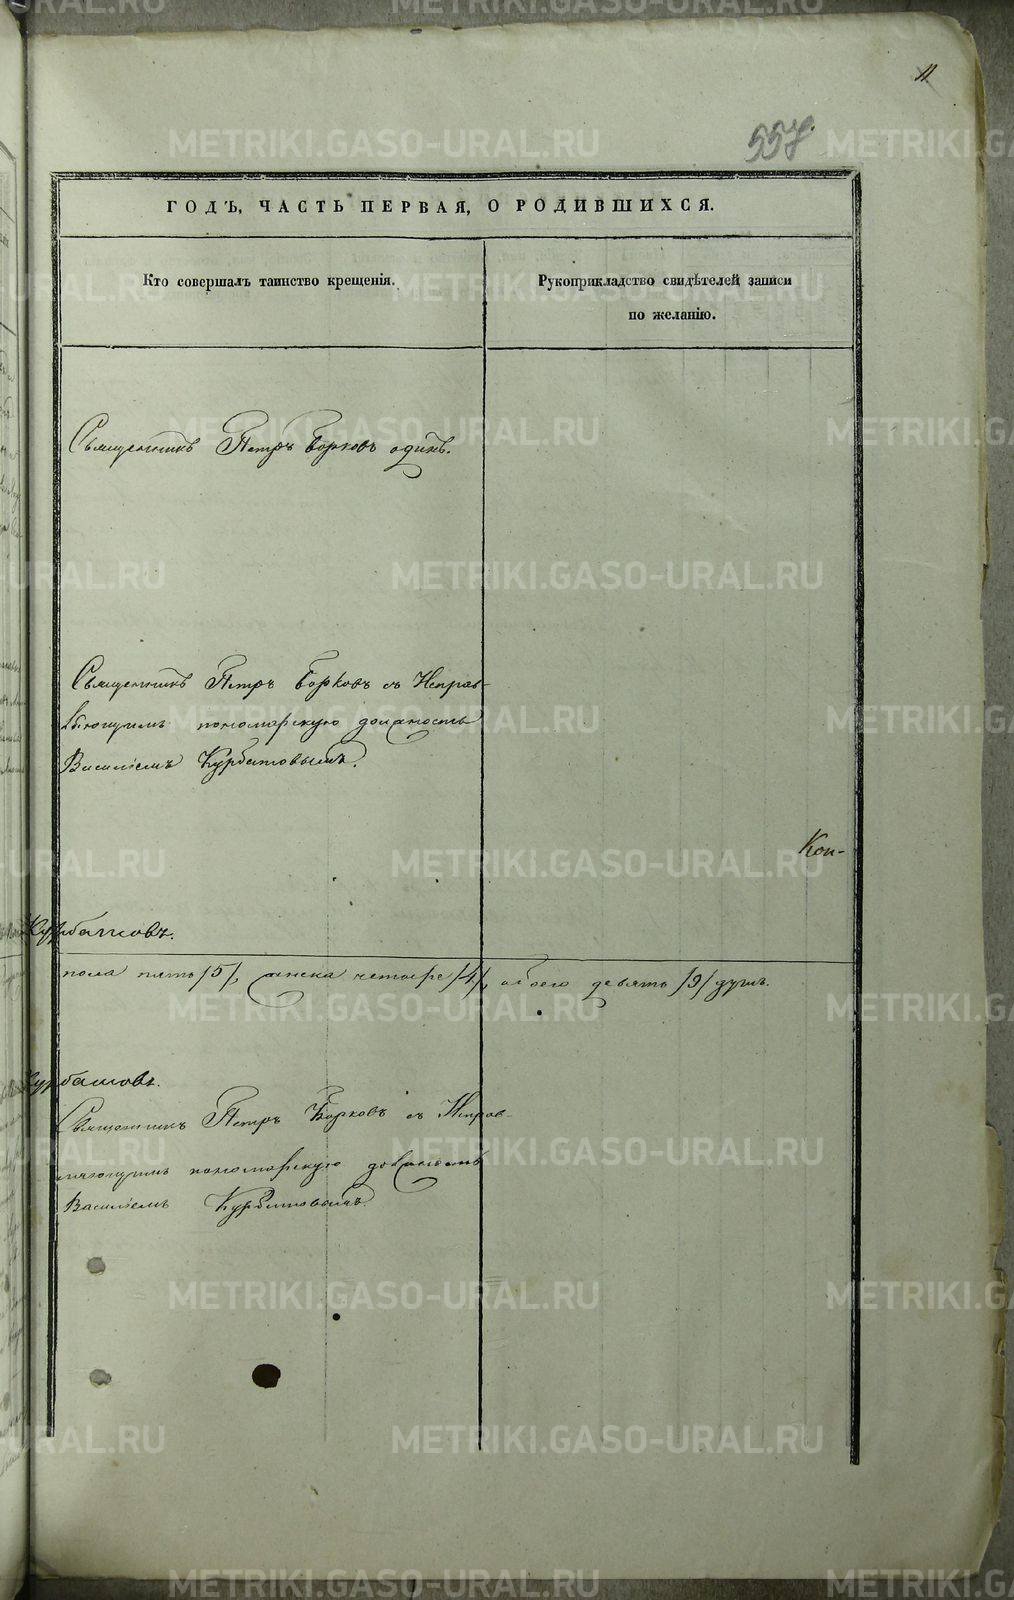 11
557
ГОДЪ, ЧАСТЬ ПЕРВАЯ, О РОДИВШИХСЯ.
Кто совершалъ таинство крещенія.
Рукоприкладство свидѣтелей записи
по желанію.
Священникъ Петръ Борковъ одинъ.
Священникъ Петръ Борковъ съ Исправ-
ляющимъ пономарскую должность
Василіемъ Курбатовымъ.
Кон-
Курбатовъ.
пола пять /5/, женска четыре /4/, обоего девять /9/ душъ.
Курбатовъ.
Священникъ Петръ Борковъ съ Исправ-
ляющимъ пономарскую должность
Василіемъ Курбатовымъ.
METRIKI.GASO-URAL.RU